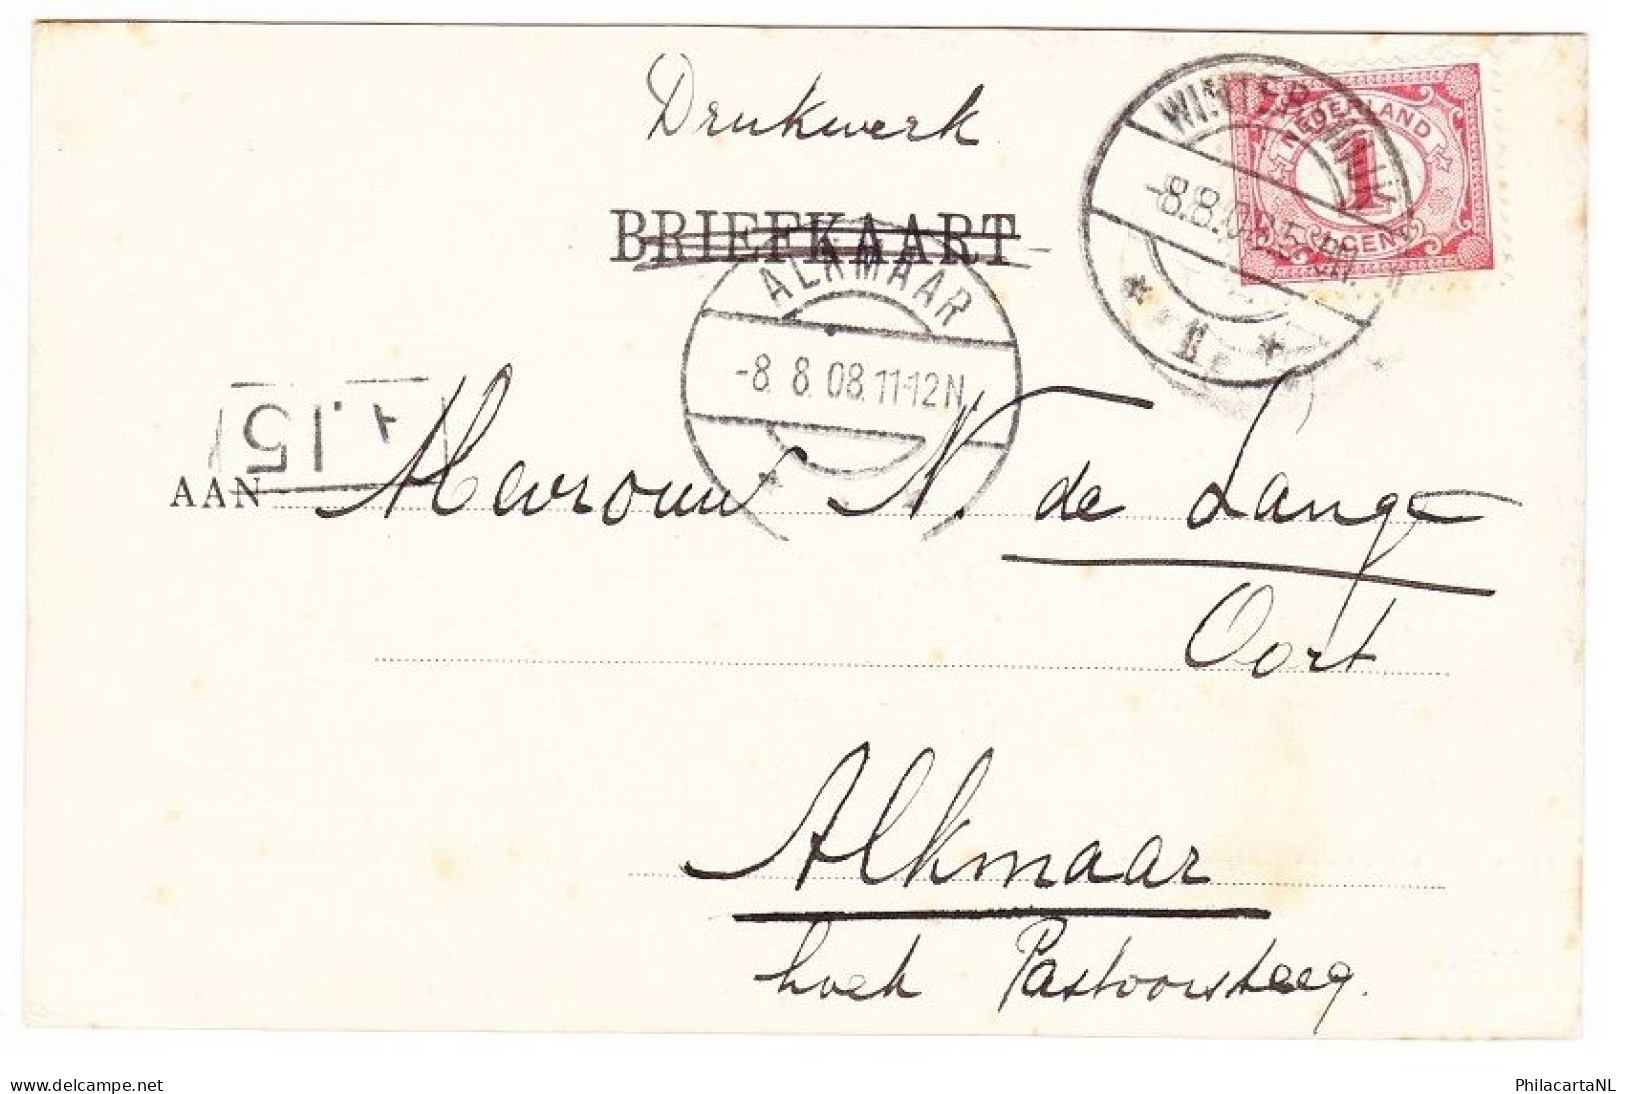 Drukwerk
BRIEFKAART
NEDERLAND
1
CENT
-8.8.08.
ALKMAAR
-8. 8. 08. 11-12N
15
AAN Mevrouw N. de Lange
Oort
Alkmaar
hoek Pastoorsteeg.
www.delcampe.net
PhilacartaNL